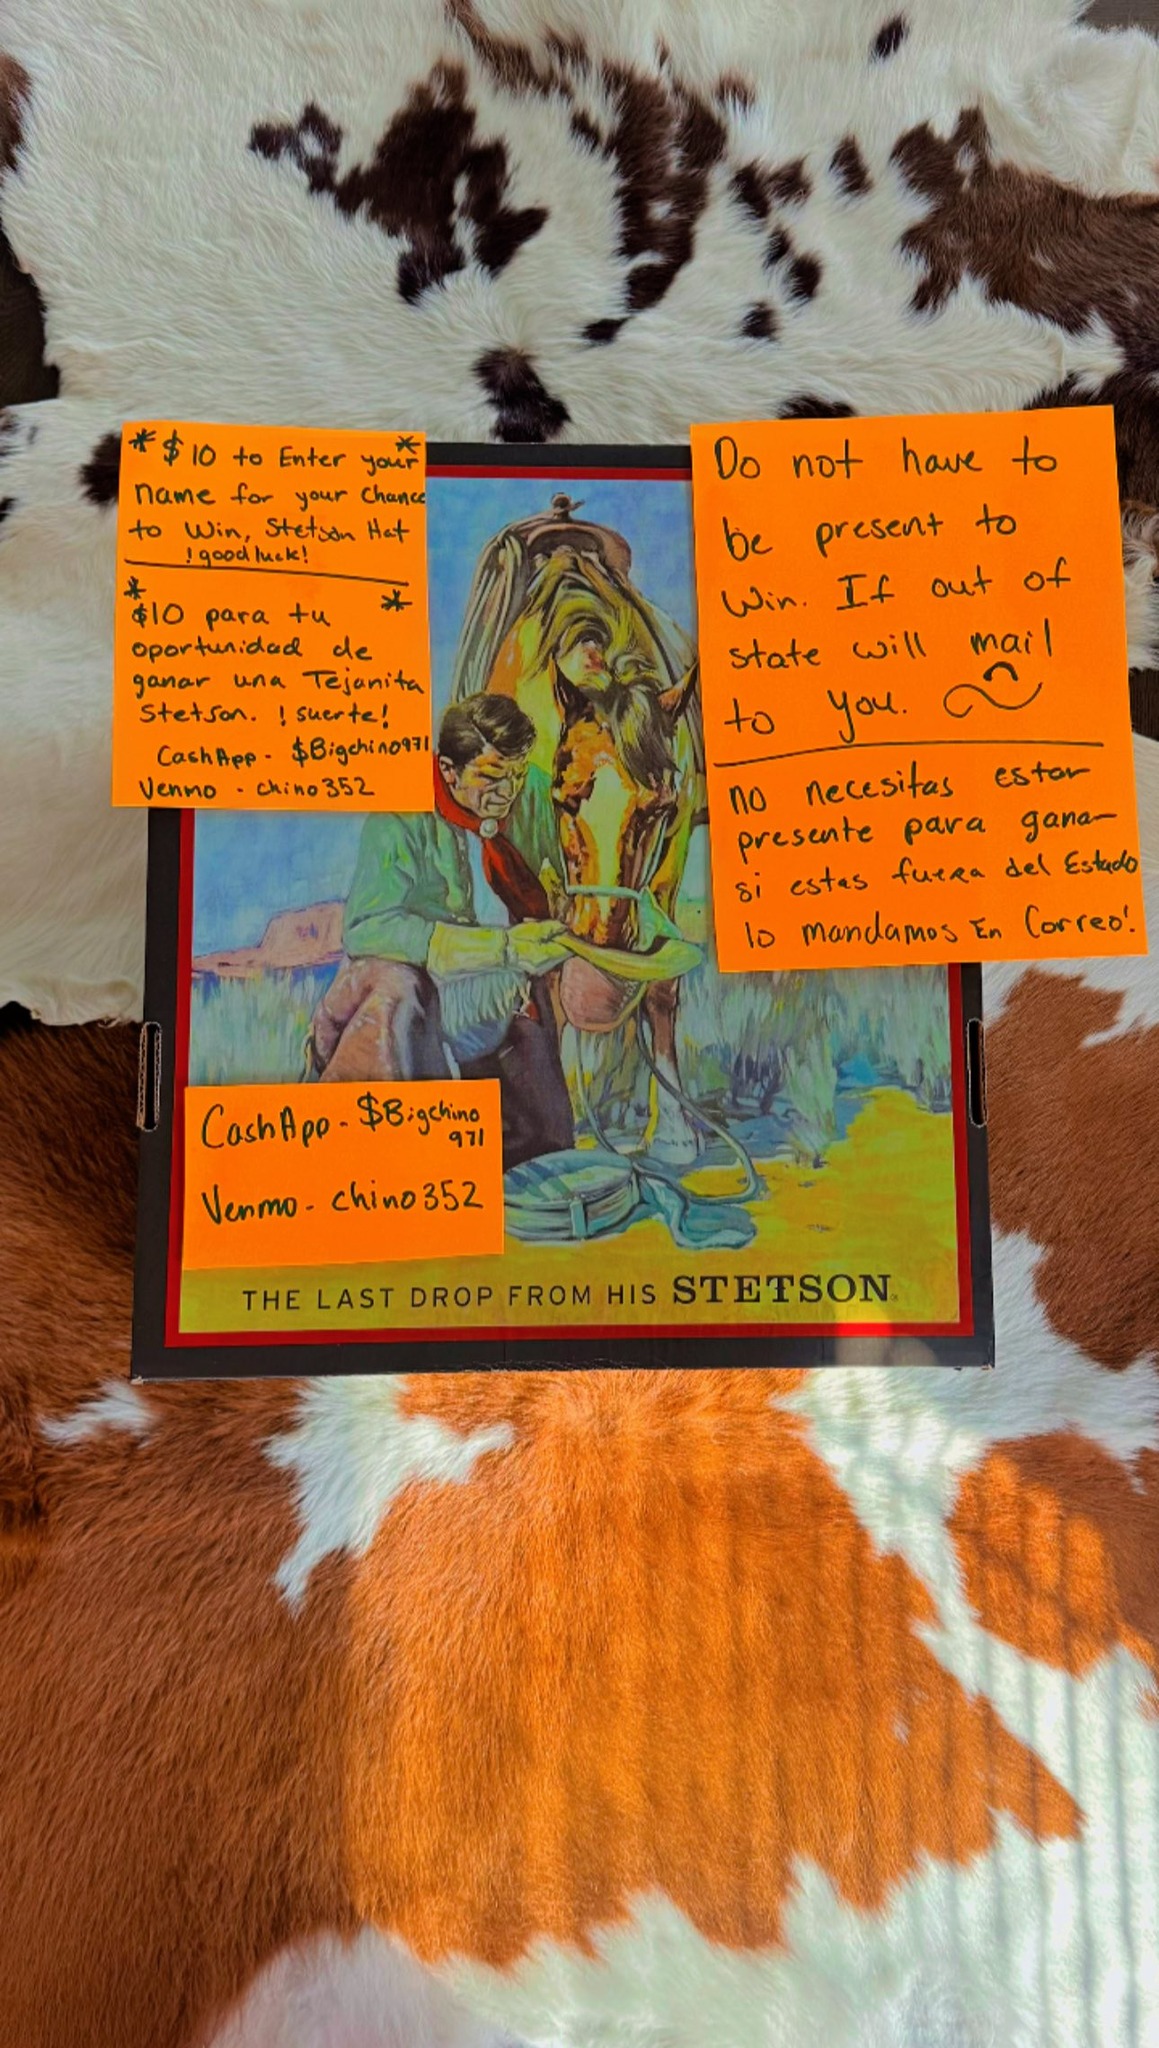 * $10 to Enter your *
name for your Chance
to Win, Stetson Hat
! good luck!
* $10 para tu *
oportunidad de
ganar una Tejanita
Stetson. ! suerte!
CashApp - $Bigchino971
Venmo - chino352
Do not have to
be present to
Win. If out of
state will mail
to you.
no necesitas estar
presente para ganar
si estas fuera del Estado
lo mandamos En Correo!
CashApp - $Bigchino
971
Venmo - chino352
THE LAST DROP FROM HIS STETSON